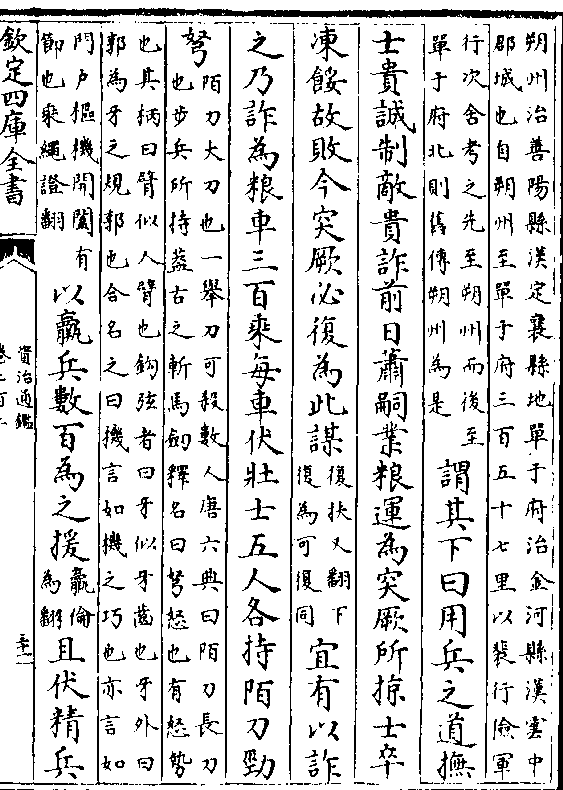 朔州治善陽縣漢定襄縣地單于府治金河縣漢雲中
郡城也自朔州至單于府三百五十七里以裴行儉軍
行次舍考之先至朔州而後至
單于府北則舊傳朔州為是
謂其下曰用兵之道撫
士貴誠制敵貴詐前日蕭嗣業粮運為突厥所掠士卒
凍餒故敗今突厥必復為此謀
復扶又翻下
復為可復同
宜有以詐
之乃詐為粮車三百乘每車伏壯士五人各持陌刀勁
弩
陌刀大刀也一舉刀可殺數人唐六典曰陌刀長刀
也步兵所持蓋古之斬馬劍釋名曰弩怒也有怒勢
也其柄曰臂似人臂也鉤弦者曰牙似牙齒也牙外曰
郭為牙之規郭也合名之曰機言如機之巧也亦言如
門户樞機開闔有
節也乘繩證翻
以羸兵數百為之援
羸倫
為翻
且伏精兵
欽定四庫全書
資治通鑑